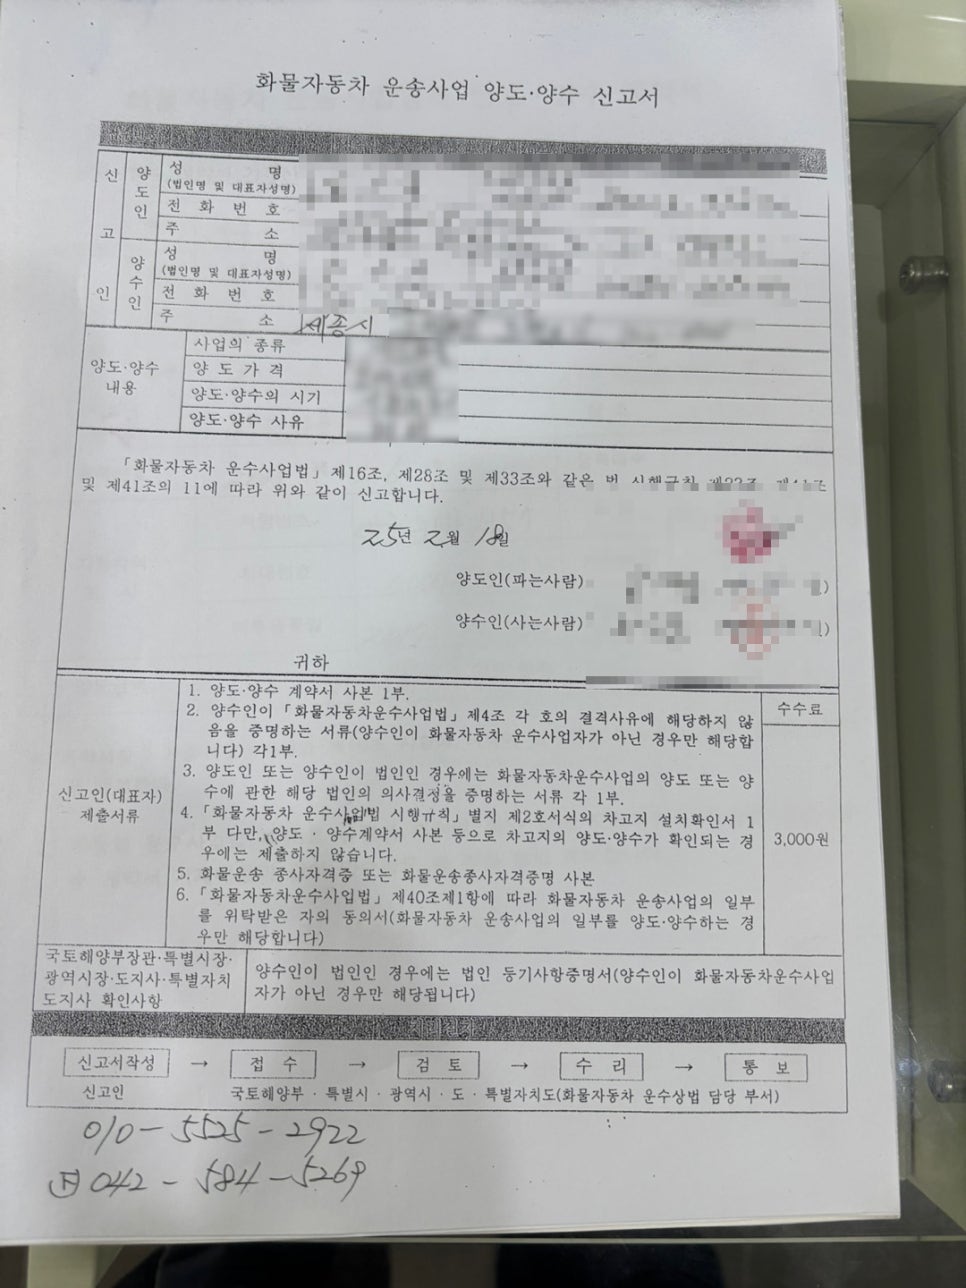 화물자동차 운송사업 양도·양수 신고서
신고인
양도인
성 명
(법인명 및 대표자성명)
전 화 번 호
주 소
양수인
성 명
(법인명 및 대표자성명)
전 화 번 호
주 소 세종시
양도·양수 내용
사업의 종류
양 도 가 격
양도·양수의 시기
양도·양수 사유
「화물자동차 운수사업법」 제16조, 제28조 및 제33조와 같은 법 시행규칙 제23조, 제41조
및 제41조의 11에 따라 위와 같이 신고합니다.
25년 2월 18일
양도인(파는사람)
양수인(사는사람)
귀하
신고인(대표자)
제출서류
1. 양도·양수 계약서 사본 1부.
2. 양수인이 「화물자동차운수사업법」 제4조 각 호의 결격사유에 해당하지 않
음을 증명하는 서류(양수인이 화물자동차 운수사업자가 아닌 경우만 해당합
니다) 각1부.
3. 양도인 또는 양수인이 법인인 경우에는 화물자동차운수사업의 양도 또는 양
수에 관한 해당 법인의 의사결정을 증명하는 서류 각 1부.
4. 「화물자동차 운수사업법 시행규칙」 별지 제2호서식의 차고지 설치확인서 1
부 다만, 양도·양수계약서 사본 등으로 차고지의 양도·양수가 확인되는 경
우에는 제출하지 않습니다.
5. 화물운송 종사자격증 또는 화물운송종사자격증명 사본
6. 「화물자동차운수사업법」 제40조제1항에 따라 화물자동차 운송사업의 일부
를 위탁받은 자의 동의서(화물자동차 운송사업의 일부를 양도·양수하는 경
우만 해당합니다)
수수료
3,000원
국토해양부장관·특별시장·
광역시장·도지사·특별자치
도지사 확인사항
양수인이 법인인 경우에는 법인 등기사항증명서(양수인이 화물자동차운수사업
자가 아닌 경우만 해당됩니다)
신고서작성 → 접 수 → 검 토 → 수 리 → 통 보
신고인 국토해양부·특별시·광역시·도·특별자치도(화물자동차 운수상법 담당 부서)
010-5525-2922
042-584-5269